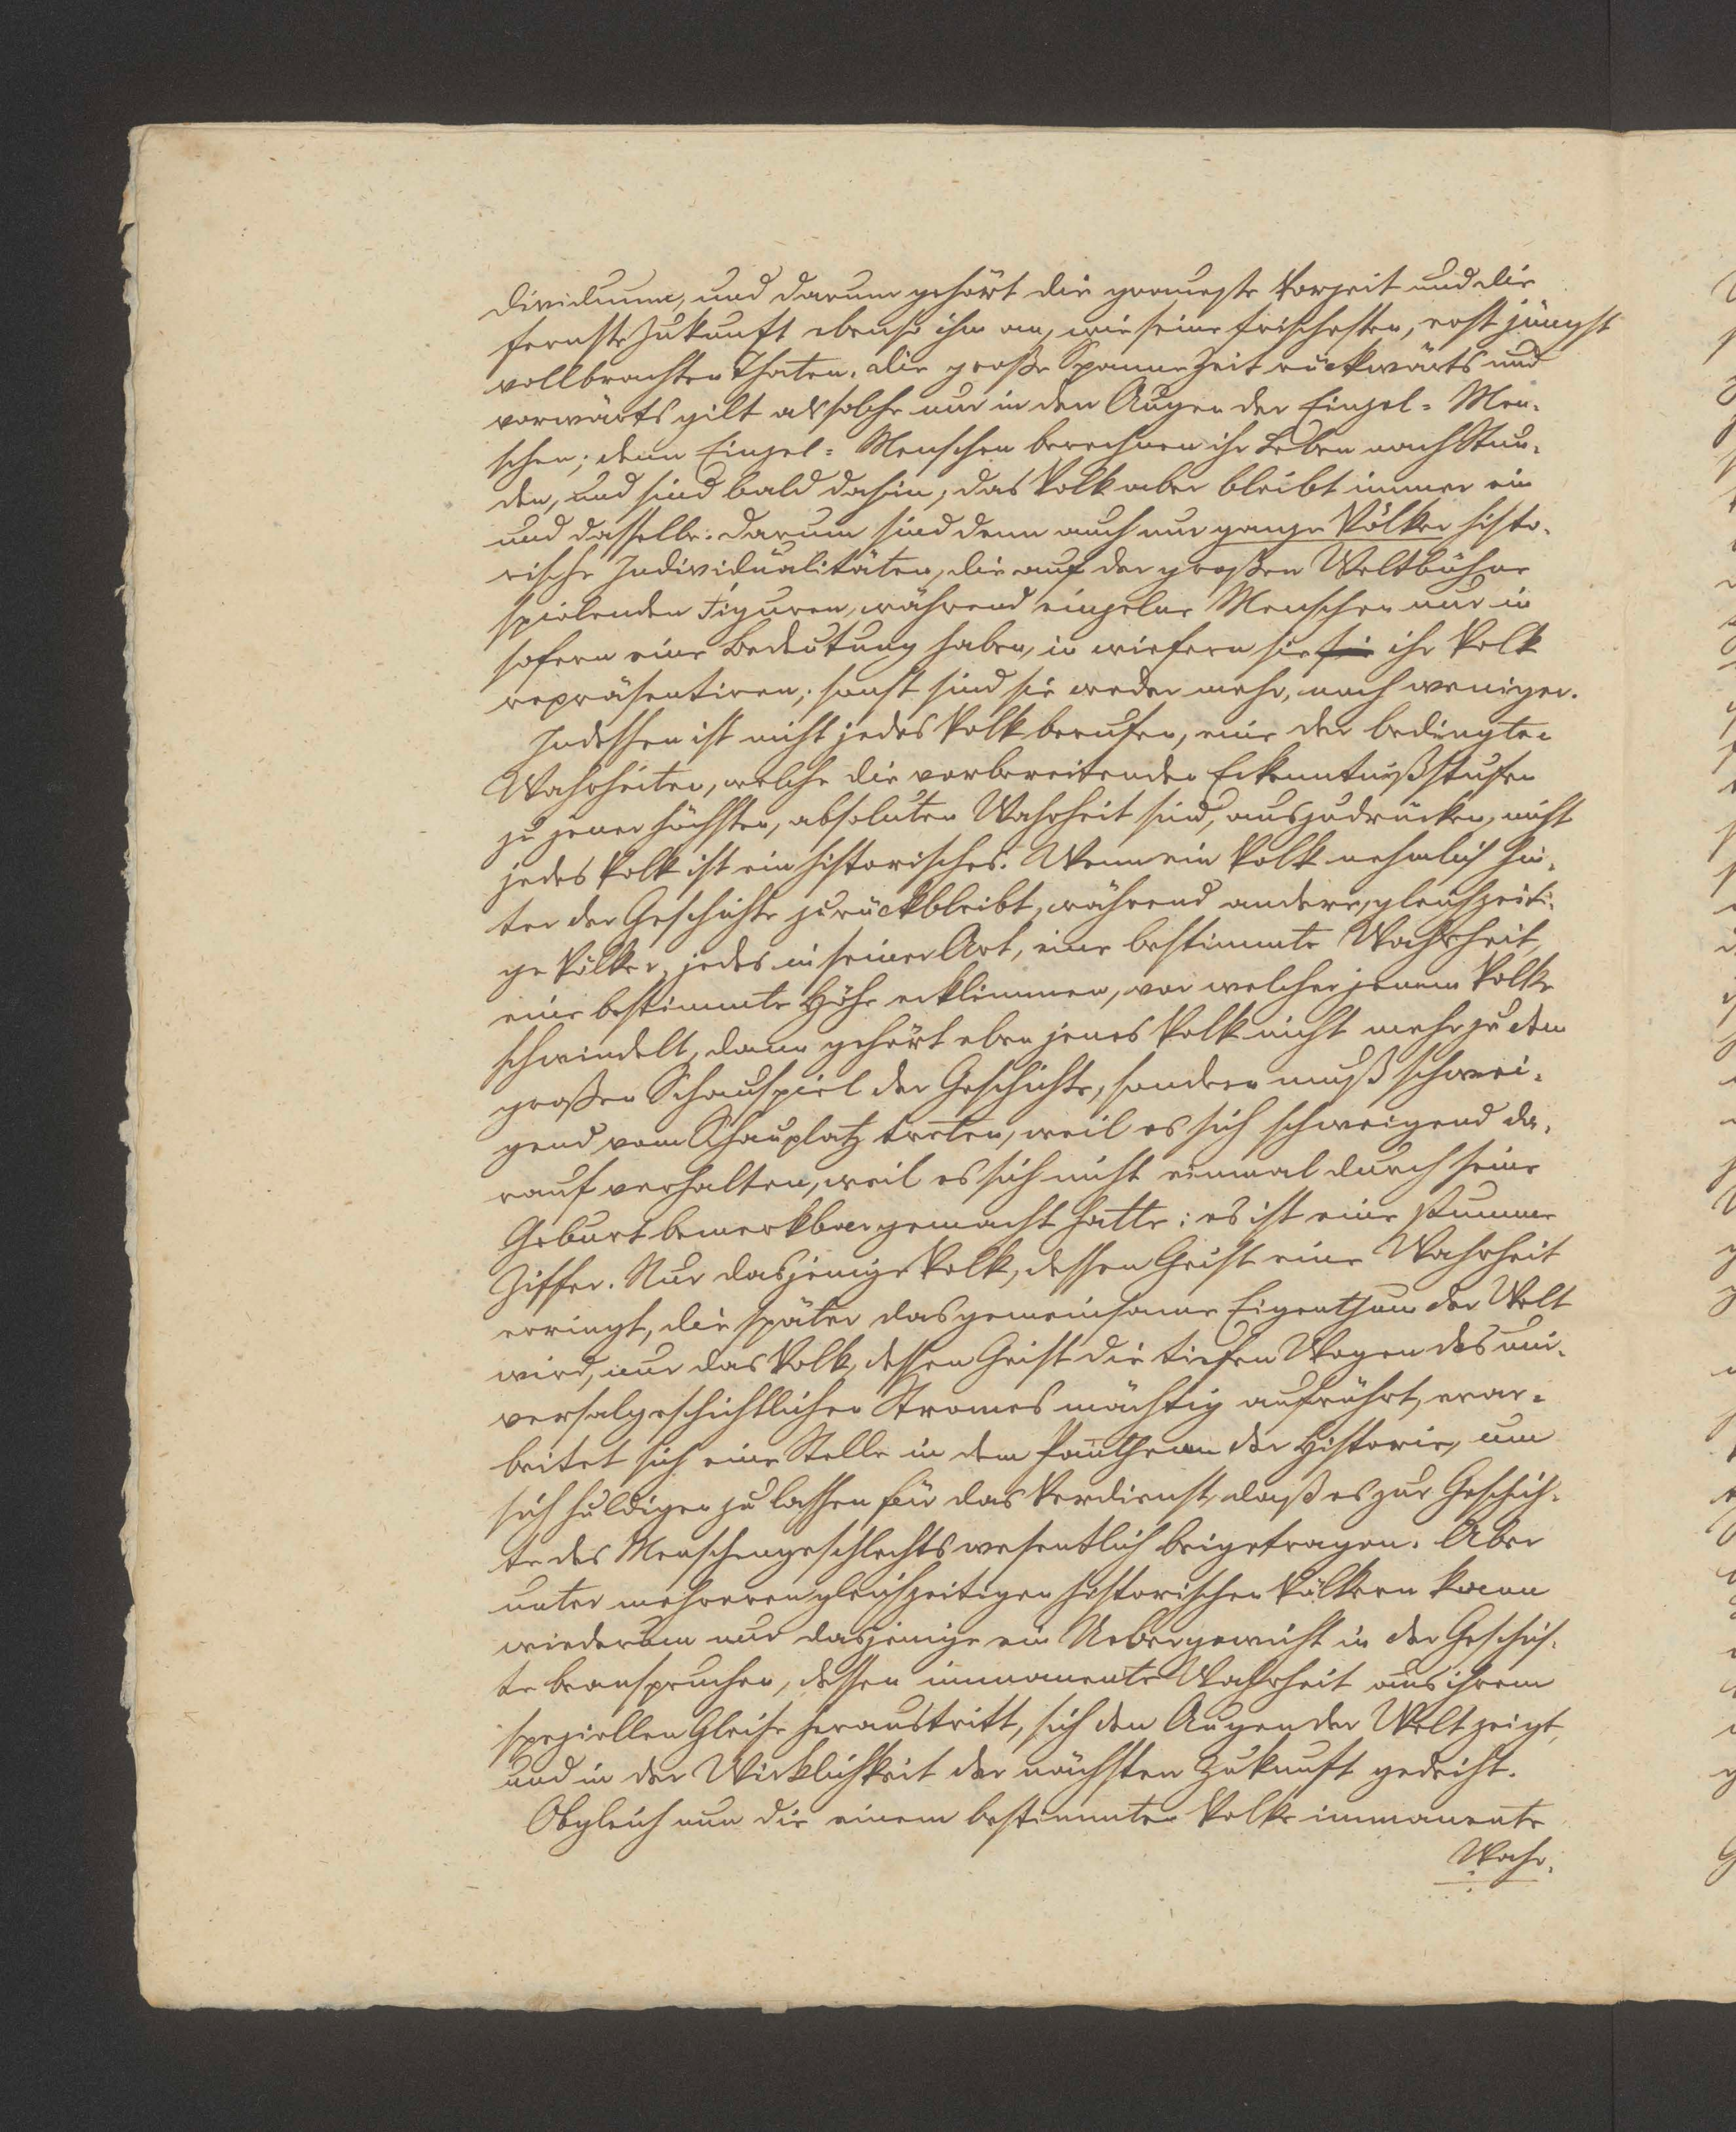 dividuum, und darum gehört die graueste Vorzeit und die
fernste Zukunft ebenso ihm an, wie seine frischesten, erst jüngst
vollbrachten Thaten. Die große Spanne Zeit rückwärts und
vorwärts gilt als solche nur in den Augen der Einzel=Men-
schen; denn Einzel=Menschen berechnen ihr Leben nach Stun-
den, und sind bald dahin; das Volk aber bleibt immer ein
und dasselbe. Darum sind denn auch nur ganze Völker histo-
rische Individualitäten, die auf der großen Weltbühne
spielenden Figuren, während einzelne Menschen nur in
sofern eine Bedeutung haben, in wiefern sie sie ihr Volk
repräsentiren; sonst sind sie weder mehr, noch weniger.
Indessen ist nicht jedes Volk berufen, eine der bedingten
Wahrheiten, welche die vorbereitenden Erkenntnißstufen
zu jener höchsten, absoluten Wahrheit sind, auszudrücken, nicht
jedes Volk ist ein historisches. Wenn ein Volk nehmlich hin-
ter der Geschichte zurückbleibt, während andere, gleichzeiti-
ge Völker, jedes in seiner Art, eine bestimmte Wahrheit,
eine bestimmte Höhe erklimmen, vor welcher jenem Volke
schwindelt, dann gehört eben jenes Volk nicht mehr zu dem
großen Schauspiel der Geschichte, sondern muß schwei-
gend vom Schauplatz treten, weil es sich schweigend da-
rauf verhalten, weil es sich nicht einmal durch seine
Geburt bemerkbar gemacht hatte: es ist eine stumme
Ziffer. Nur dasjenige Volk, dessen Geist eine Wahrheit
erringt, die später das gemeinsame Eigenthum der Welt
wird, nur das Volk, dessen Geist die tiefen Wogen des uni-
versalgeschichtlichen Stromes mächtig aufrührt, erar-
beitet sich eine Stelle in dem Pantheon der Historie, um
sich huldigen zu lassen für das Verdienst, daß es zur Geschich-
te des Menschengeschlechts wesentlich beigetragen. Aber
unter mehreren gleichzeitigen historischen Völkern kann
wiederum nur dasjenige ein Uebergewicht in der Geschich-
te beanspruchen, dessen immanente Wahrheit aus ihrem
speziellen Gleise heraustritt, sich den Augen der Welt zeigt,
und in der Wirklichkeit der nächsten Zukunft gedeiht.
Obgleich nun die einem bestimmten Volke immanente
Wahr-